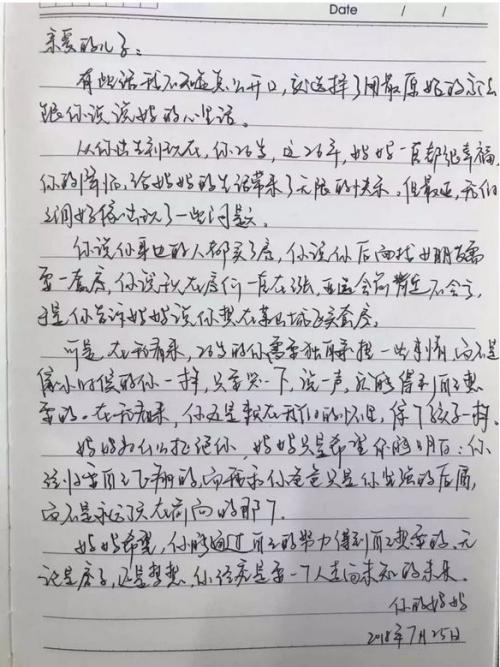 Date / /
亲爱的儿子:
有些话我不知道怎么开口,就选择了用最原始的方法
跟你说说妈妈的心里话。
从你出生到现在,你26岁,这26年,妈妈一直都很幸福,
你的降临,给妈妈的生活带来了无限的快乐。但最近,我们
之间好像出现了一些问题。
你说你身边的人都买了房,你说你后面找女朋友需
要一套房,你说现在房价一直在涨,
于是你告诉妈妈说你想在 买套房。
可是,在我看来,26岁的你需要独自承担一些事情,而不是
像小时候的你一样,只要哭一下,说一声,就能得到自己想
要的。在我看来,你还是躲在我们的怀里,像个孩子一样。
妈妈为什么拒绝你,妈妈只是希望你能明白:你
是要自己飞翔的,而我和你爸爸只是你坚强的后盾,
而不是永远顶在前面的那个。
妈妈希望,你能通过自己的努力得到自己想要的,无
论是房子,还是梦想,你终究是要一个人走向未知的未来。
你的妈妈
2018年7月25日